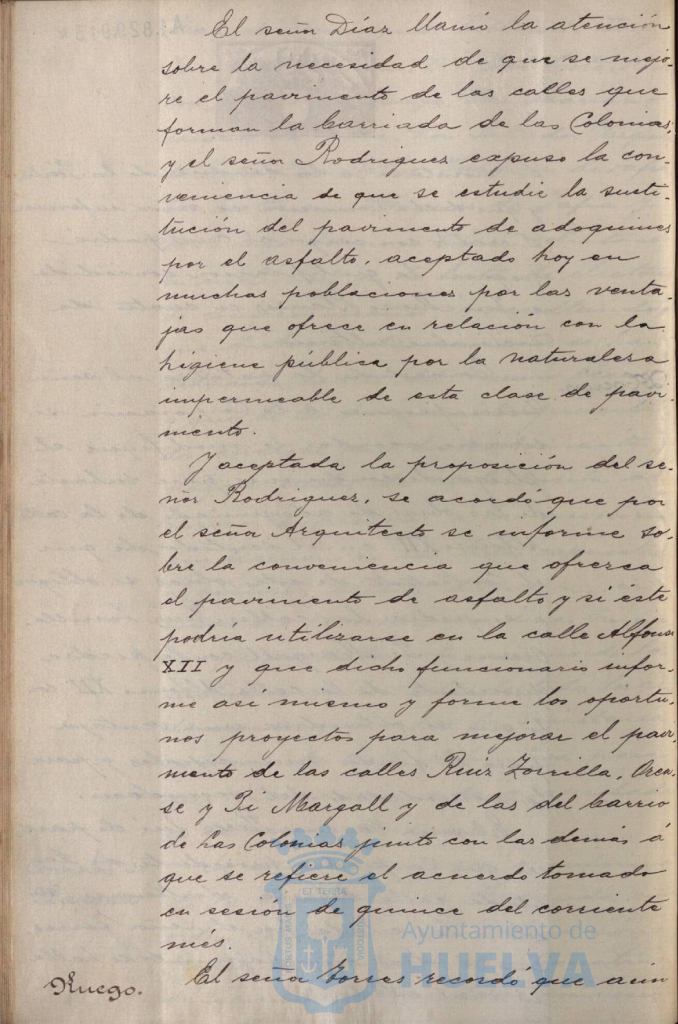 El señor Díaz llamó la atención
sobre la necesidad de que se mejo-
re el pavimento de las calles que
forman la barriada de las Colonias,
y el señor Rodriguez expuso la con-
veniencia de que se estudie la susti-
tución del pavimento de adoquines
por el asfalto, aceptado hoy en
muchas poblaciones por las venta-
jas que ofrece en relación con la
higiene pública por la naturaleza
impermeable de esta clase de pavi-
mento.
Y aceptada la proposición del se-
ñor Rodriguez, se acordó que por
el señor Arquitecto se informe so-
bre la conveniencia que ofrezca
el pavimento de asfalto y si éste
podría utilizarse en la calle Alfonso
XII y que dicho funcionario infor-
me asi mismo y forme los oportu-
nos proyectos para mejorar el pavi-
mento de las calles Ruiz Zorrilla, Oren-
se y Pi Margall y de las del barrio
de Las Colonias junto con las demás á
que se refiere el acuerdo tomado
en sesión de quince del corriente
més.
Ruego. El señor Torres recordó que aún
Ayuntamiento de
HUELVA